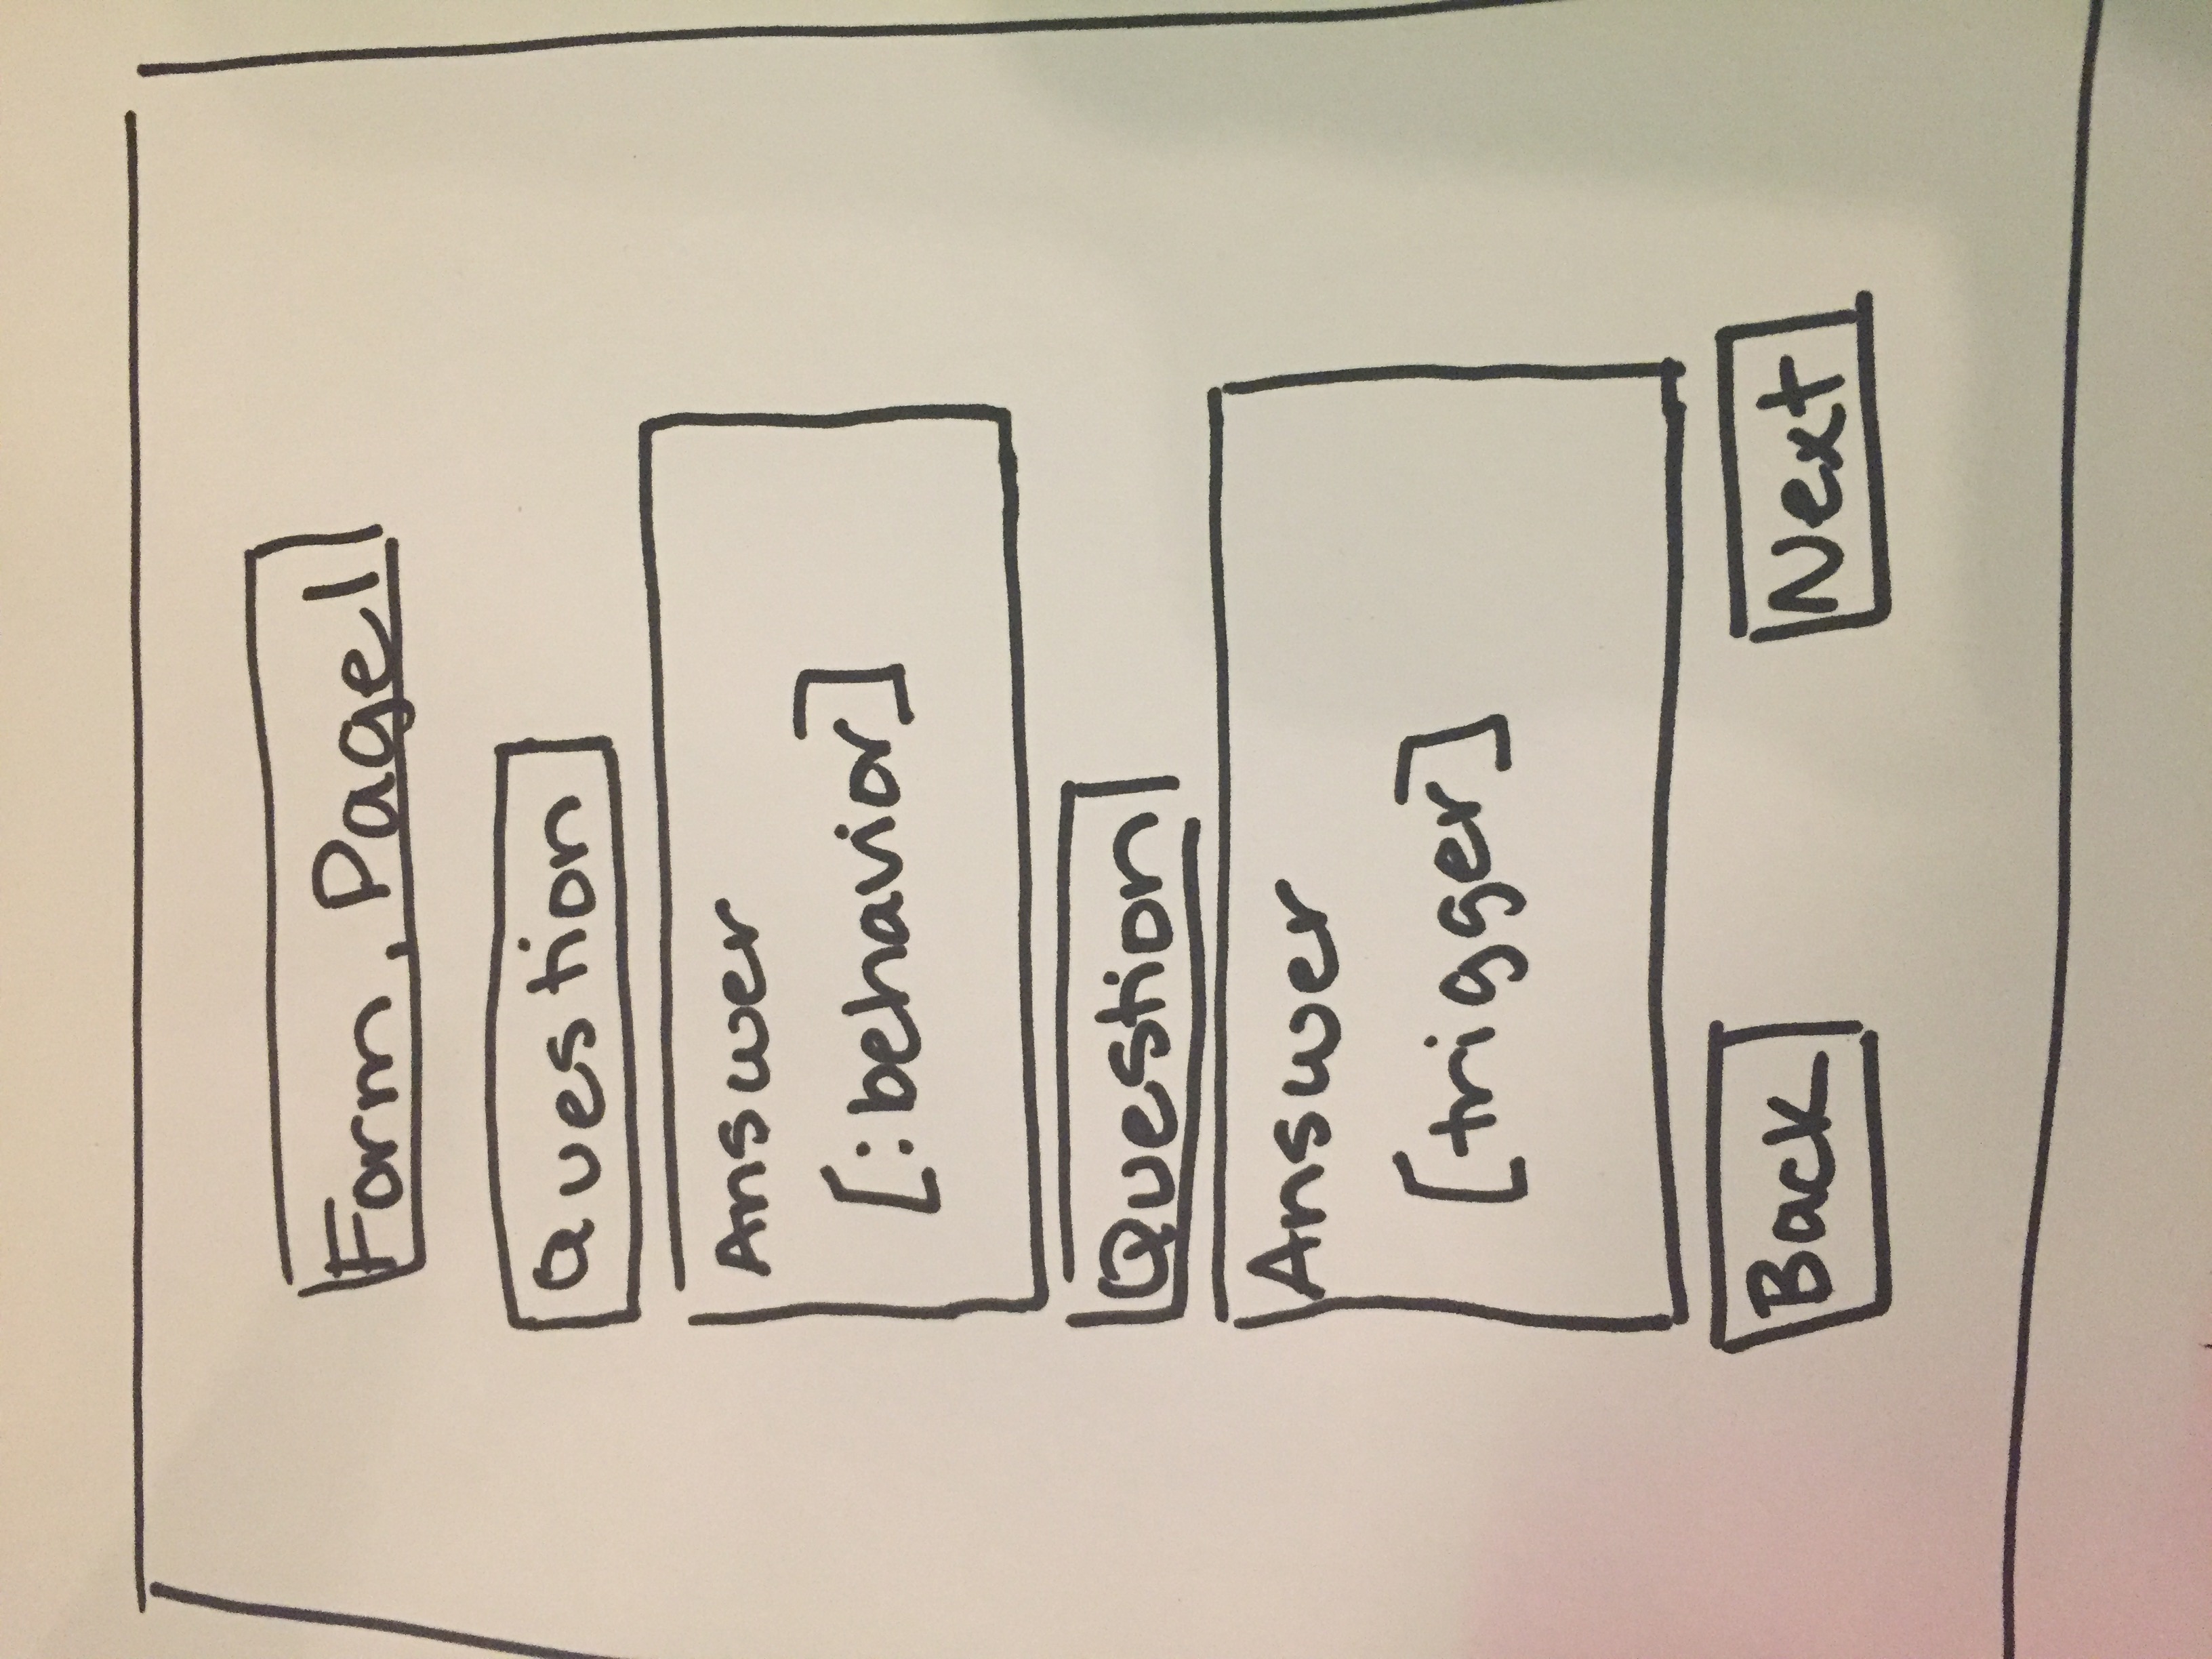 Form, Page 1
Question
Answer
[:behavior]
Question
Answer
[trigger]
Back
Next